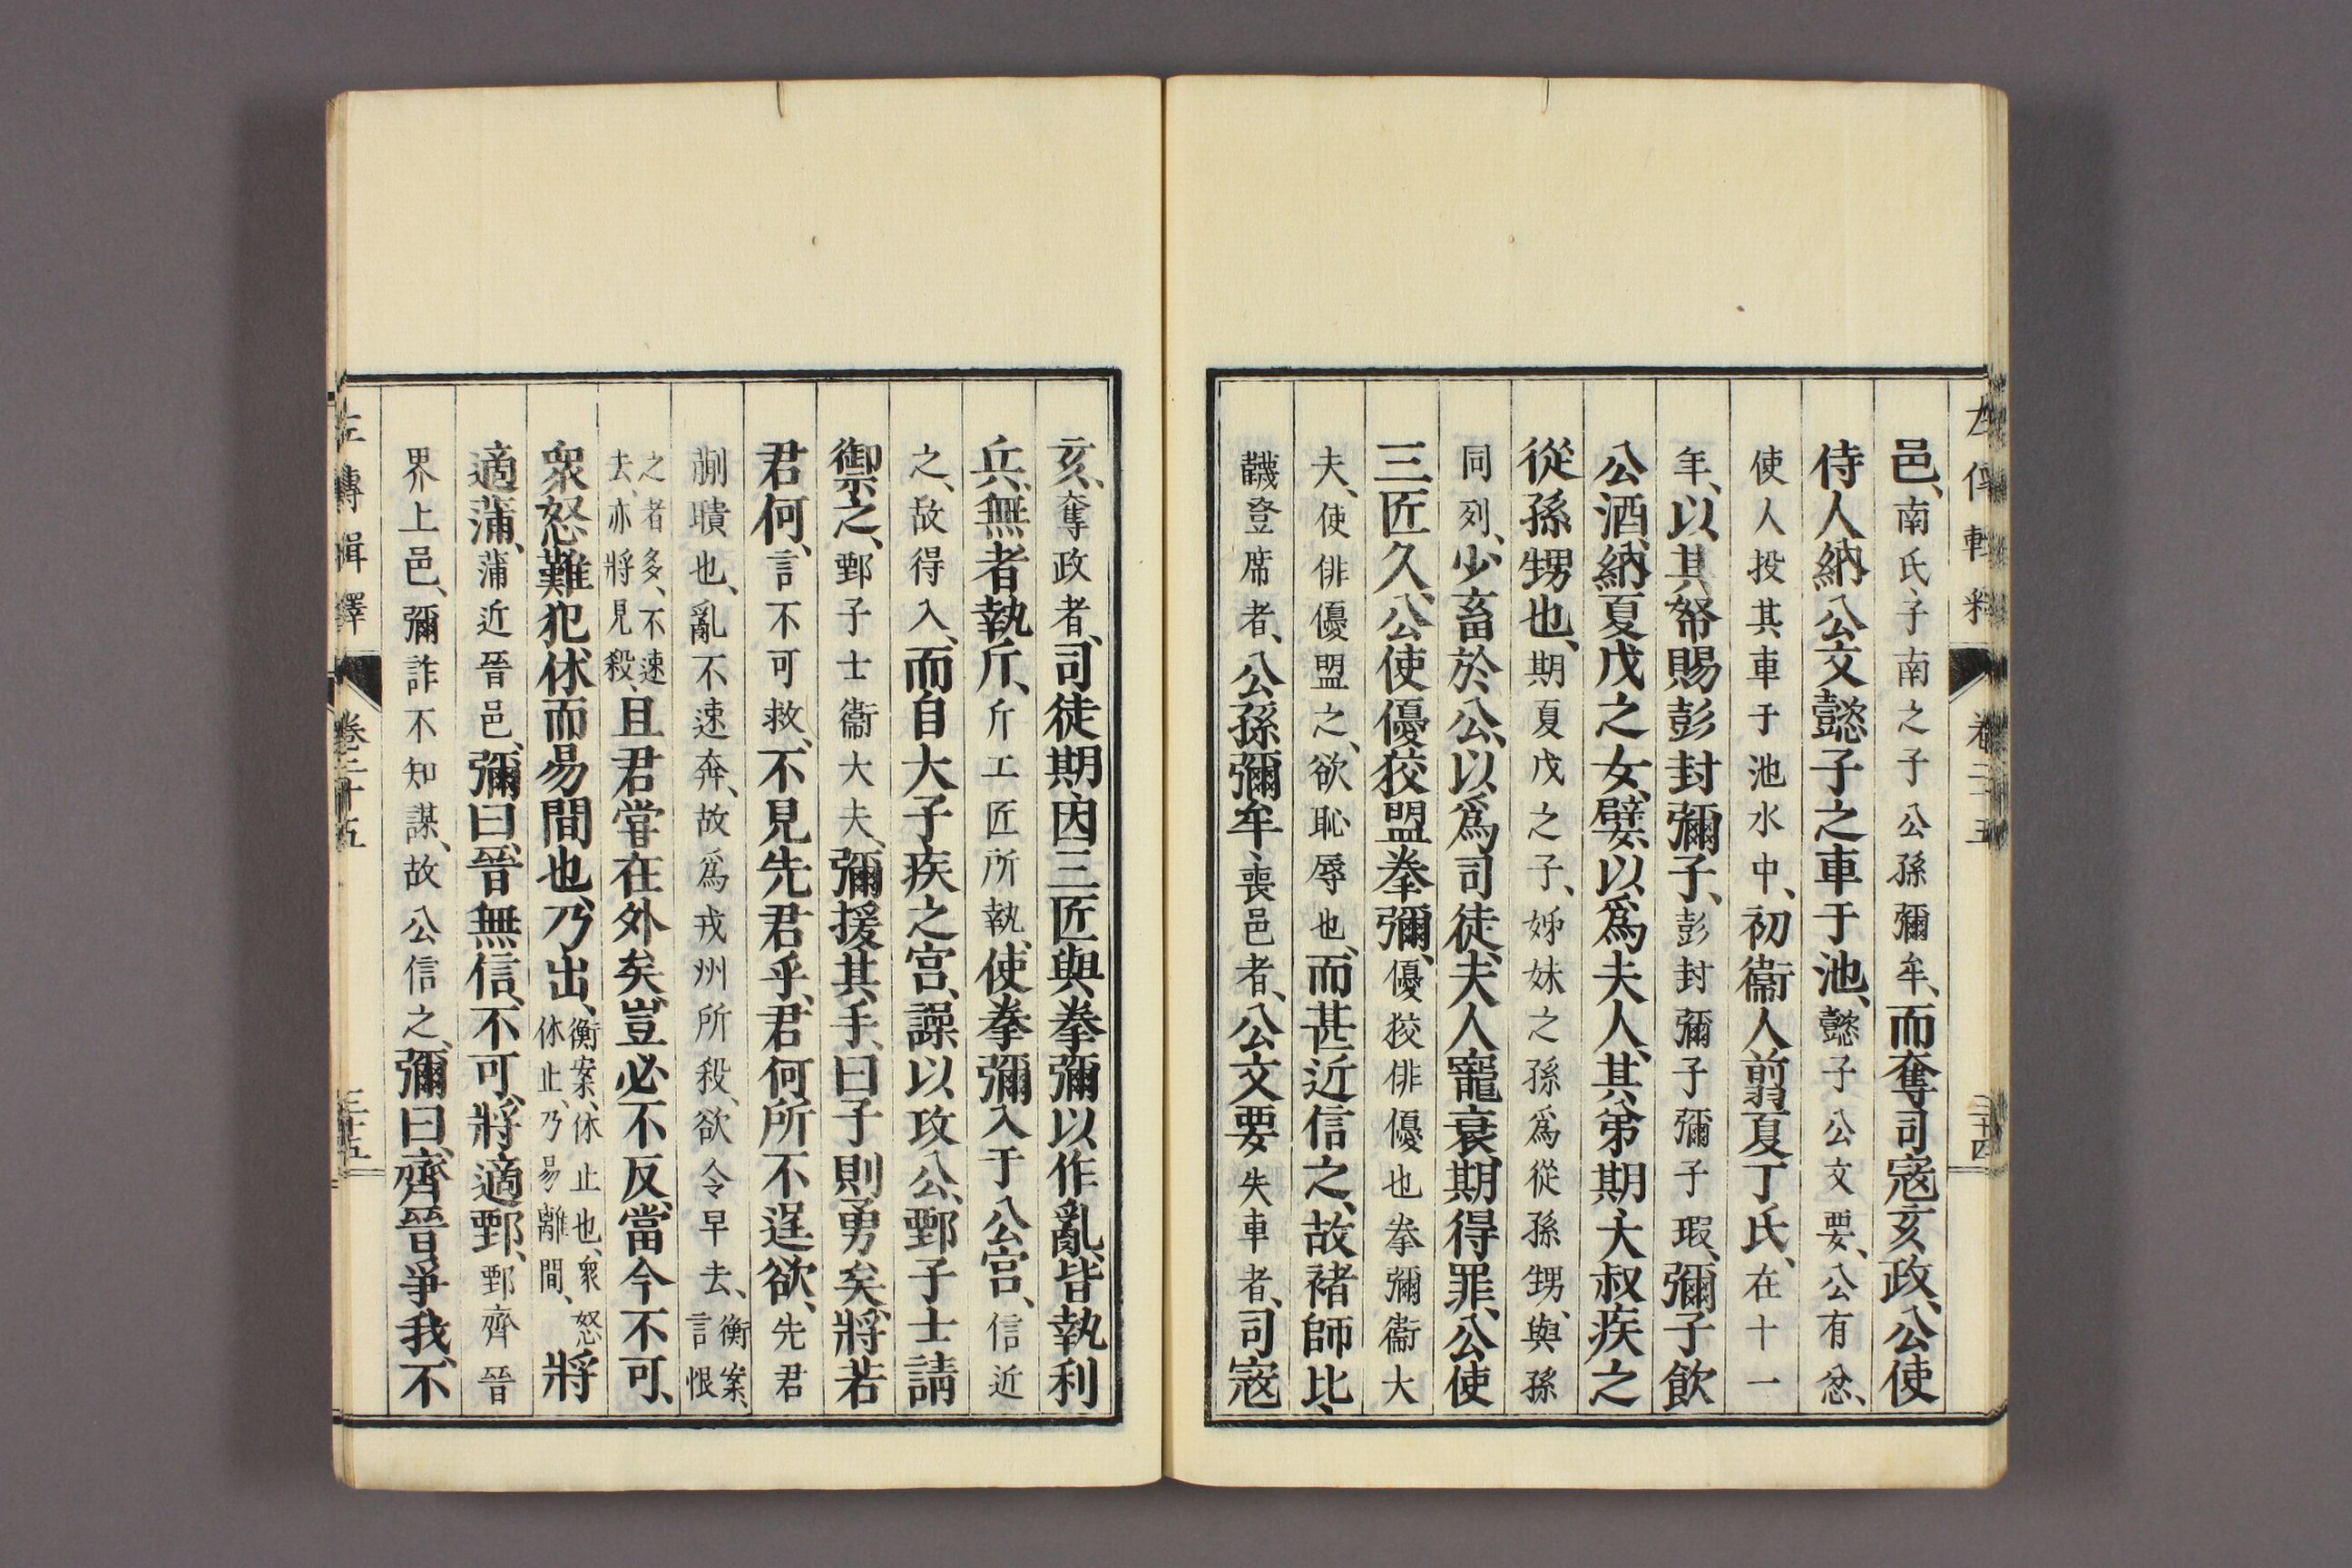 左傳輯釋 卷二十五 二十四
邑、南氏、子南之子公孫彌牟、而奪司寇亥政、公使
侍人納公文懿子之車于池、懿子公文要、公有忿、
使人投其車于池水中、初衞人翦夏丁氏、在十一
年、以其帑賜彭封彌子、彭封彌子彌子瑕、彌子飲
公酒、納夏戊之女、嬖、以爲夫人、其弟期、大叔疾之
從孫甥也、期夏戊之子、姊妹之孫爲從孫甥、與孫
同列、少畜於公、以爲司徒、夫人寵衰、期得罪、公使
三匠久、公使優狡盟拳彌、優狡俳優也拳彌衞大
夫、使俳優盟之、欲恥辱也、而甚近信之、故褚師比、
韈登席者、公孫彌牟、喪邑者、公文要失車者、司寇
亥、奪政者、司徒期、因三匠與拳彌以作亂、皆執利
兵、無者執斤、斤工匠所執、使拳彌入于公宮、信近
之、故得入、而自大子疾之宮、譟以攻公、鄄子士請
禦之、鄄子士衞大夫、彌援其手、曰子則勇矣、將若
君何、言不可救、不見先君乎、君何所不逞欲、先君
蒯聵也、亂不速奔、故爲戎州所殺、欲令早去、衡案、言恨
之者多、不速去、亦將見殺、且君嘗在外矣、豈必不反、當今不可、
衆怒難犯、休而易間也、乃出、衡案、休止也、衆怒休止、乃易離間、將
適蒲、蒲近晉邑、彌曰、晉無信、不可、將適鄄、鄄齊晉
界上邑、彌詐不知謀、故公信之、彌曰、齊晉爭我、不
左傳輯釋 卷二十五 二十五